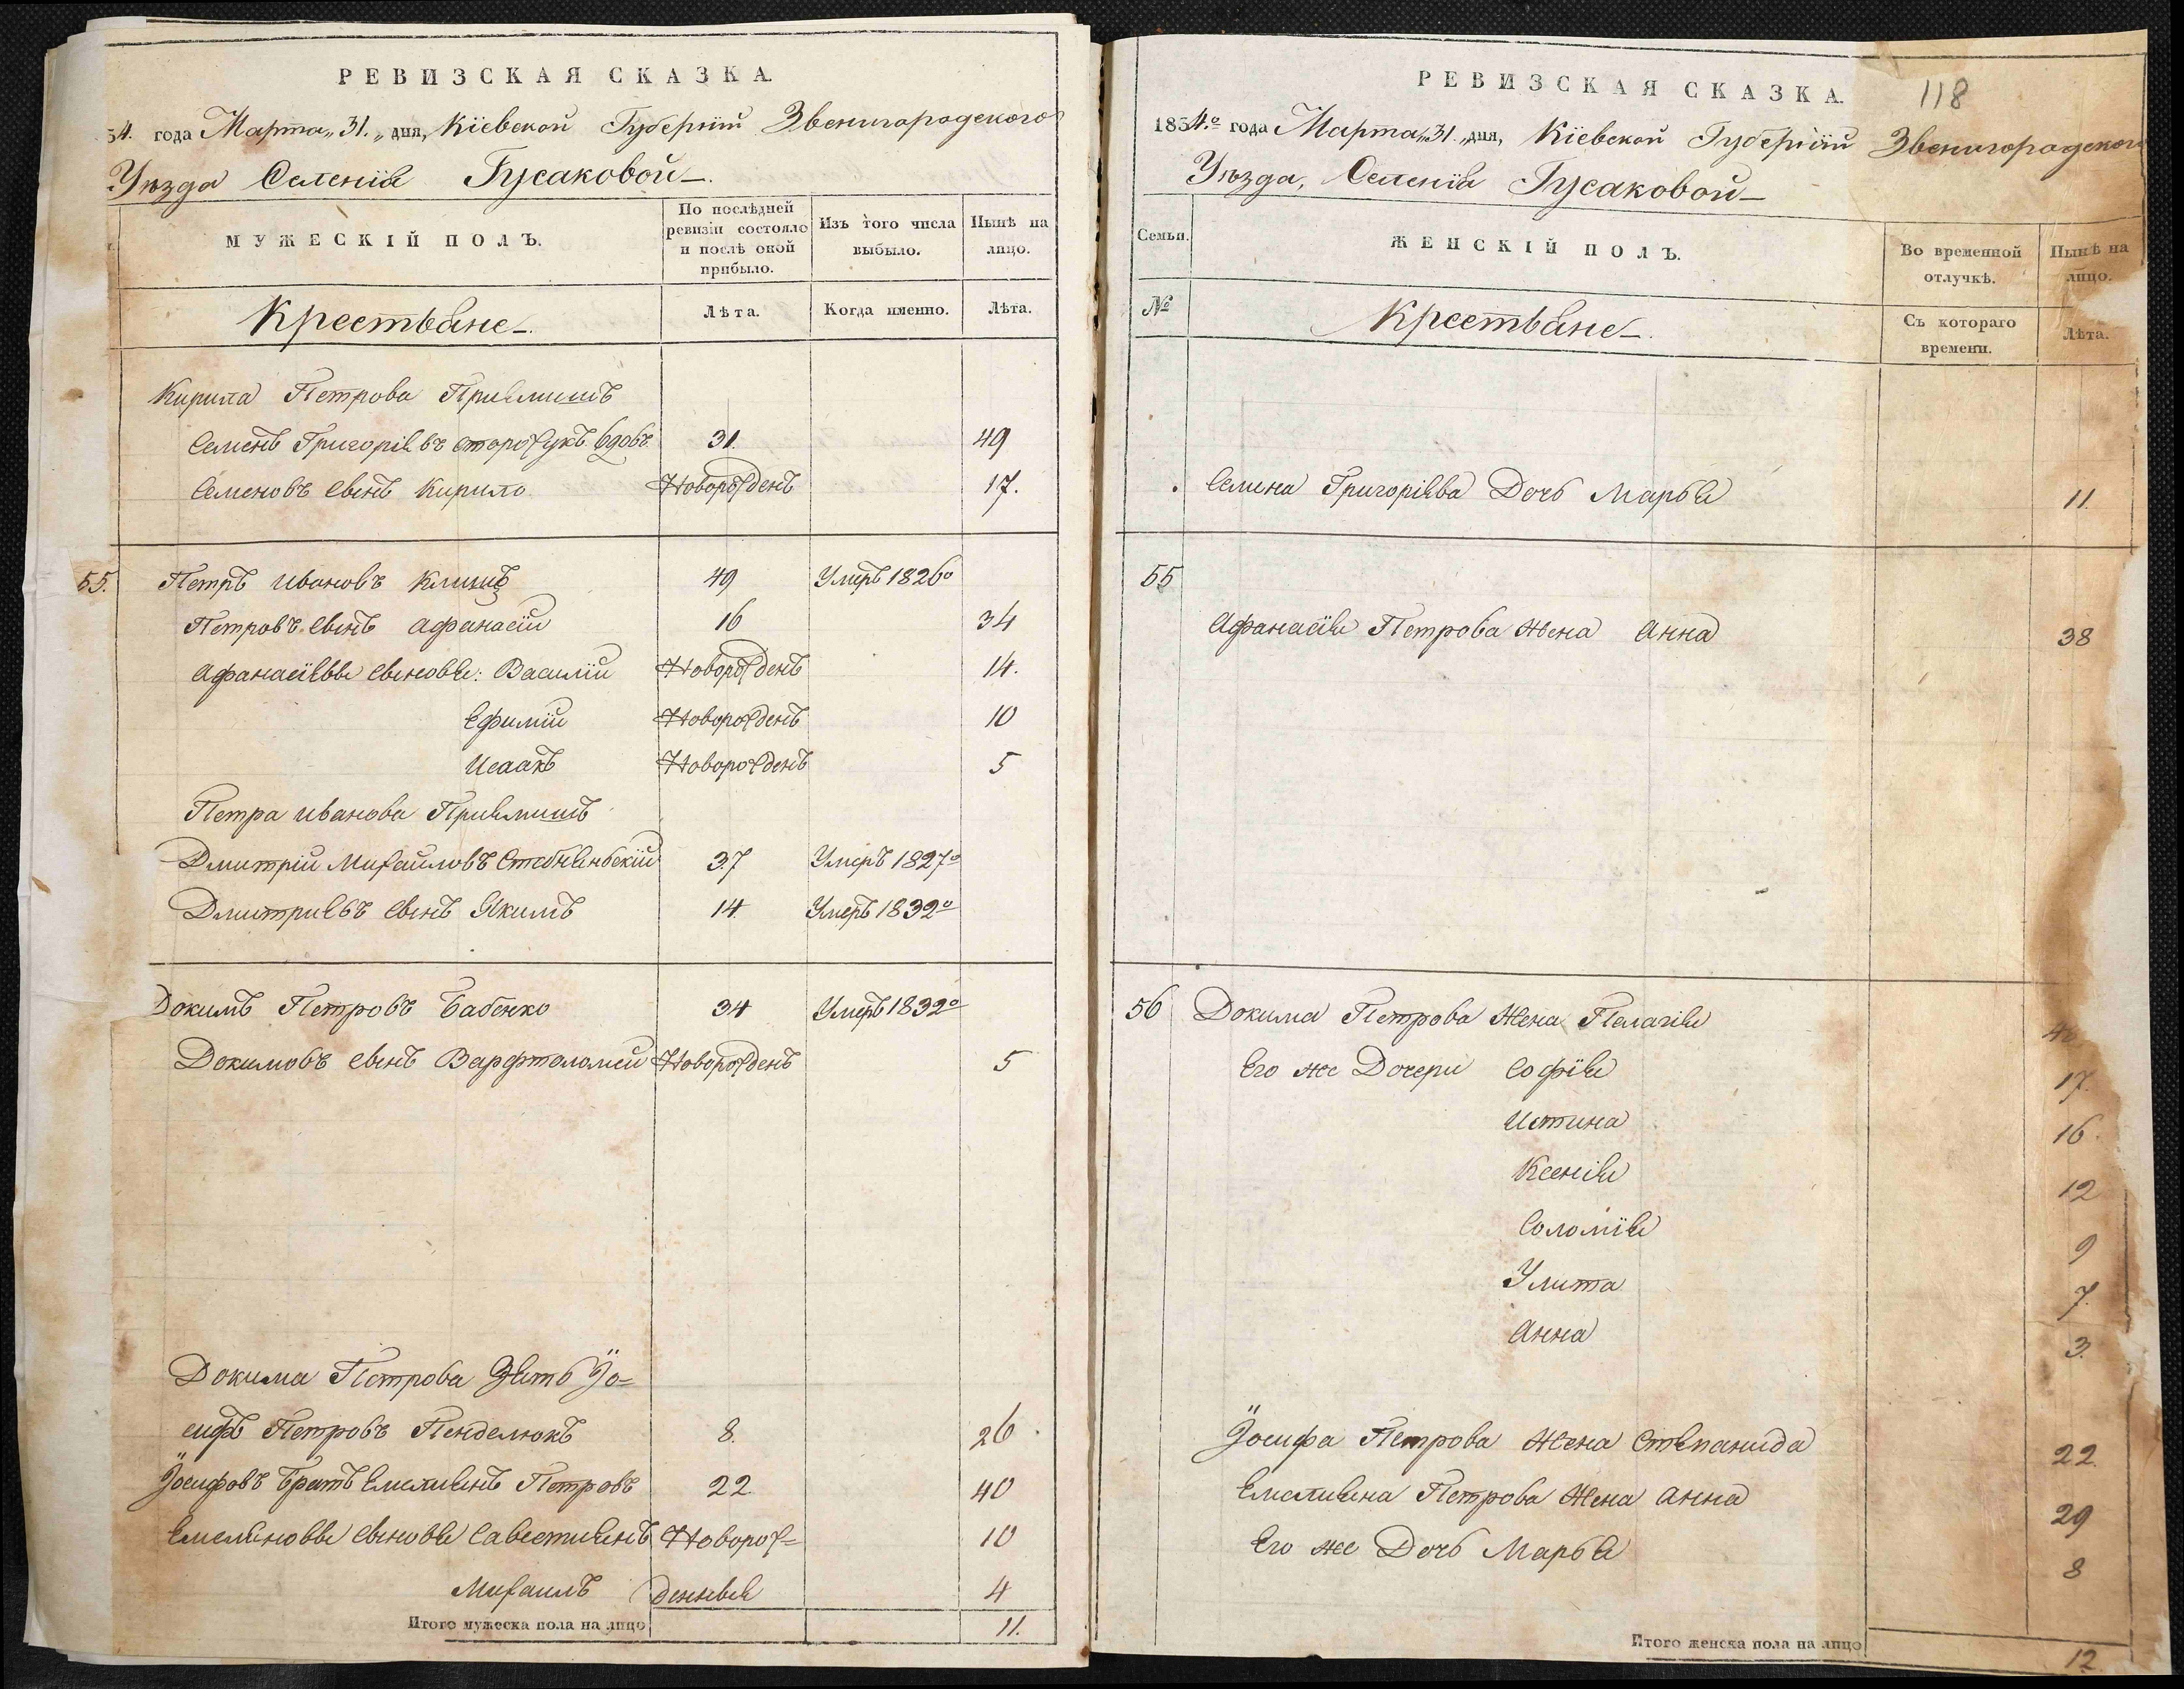 РЕВИЗСКАЯ СКАЗКА.
34. года Марта „31.„ дня, Кіевской Губерніи Звенигородского
Уѣзда Селенія Гусаковой
МУЖЕСКІЙ ПОЛЪ.
По послѣдней ревизіи состояло и послѣ оной прибыло.
Изъ того числа выбыло.
Нынѣ на лицо.
Крестьяне
Лѣта.
Когда именно.
Лѣта.
Кирила Петрова Приймишъ
Семенъ Григоріевъ Сторожукъ вдовъ 31 49
Семеновъ сынъ Кирило Новорожденъ 17.
55. Петръ Ивановъ Климъ 49 Умеръ 1826о
Петровъ сынъ Афанасій 16 34
Афанасіевы сыновья: Василій Новорожденъ 14.
Ефимій Новорожденъ 10
Исаакъ Новорожденъ 5
Петра Иванова Приймишъ
Дмитрій Михайловъ 37 Умеръ 1827о
Дмитріевъ сынъ Якимъ 14 Умеръ 1832о
Докимъ Петровъ Бабенко 34 Умеръ 1832о
Докимовъ сынъ Варфтоломей Новорожденъ 5
Докима Петрова Зять Іо=
сифъ Петровъ Пенделюкъ 8. 26.
Іосифовъ Братъ Емельянъ Петровъ 22 40
Емельяновы сыновья Савестиянъ Новорож= 10
Михаилъ денныя 4
Итого мужеска пола на лицо 11.
118
РЕВИЗСКАЯ СКАЗКА.
1834.о года Марта „31„ дня, Кіевской Губерніи Звенигородского
Уѣзда, Селенія Гусаковой
Семьи.
ЖЕНСКІЙ ПОЛЪ.
Во временной отлучкѣ.
Нынѣ на лицо.
№
Крестьяне
Съ котораго времени.
Лѣта.
Семена Григоріева Дочь Марья 11.
55
Афанасія Петрова Жена Анна 38
56 Докима Петрова Жена Пелагія
Его же Дочери Софія 17.
Истина 16.
Ксенія 12
Соломія 9
Улита 7.
Анна 3.
Іосифа Петрова Жена Степанида 22.
Емельяна Петрова Жена Анна 29
Его же Дочь Марья 8
Итого женска пола на лицо 12.